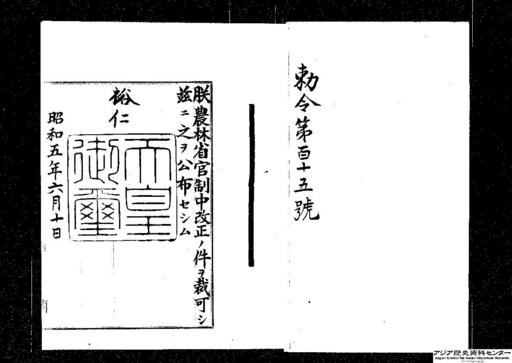 勅令第百十五號
朕農林省官制中改正ノ件ヲ裁可シ
茲ニ之ヲ公布セシム
裕仁
天皇
御璽
昭和五年六月十日
アジア歴史資料センター
Japan Center for Asian Historical Records